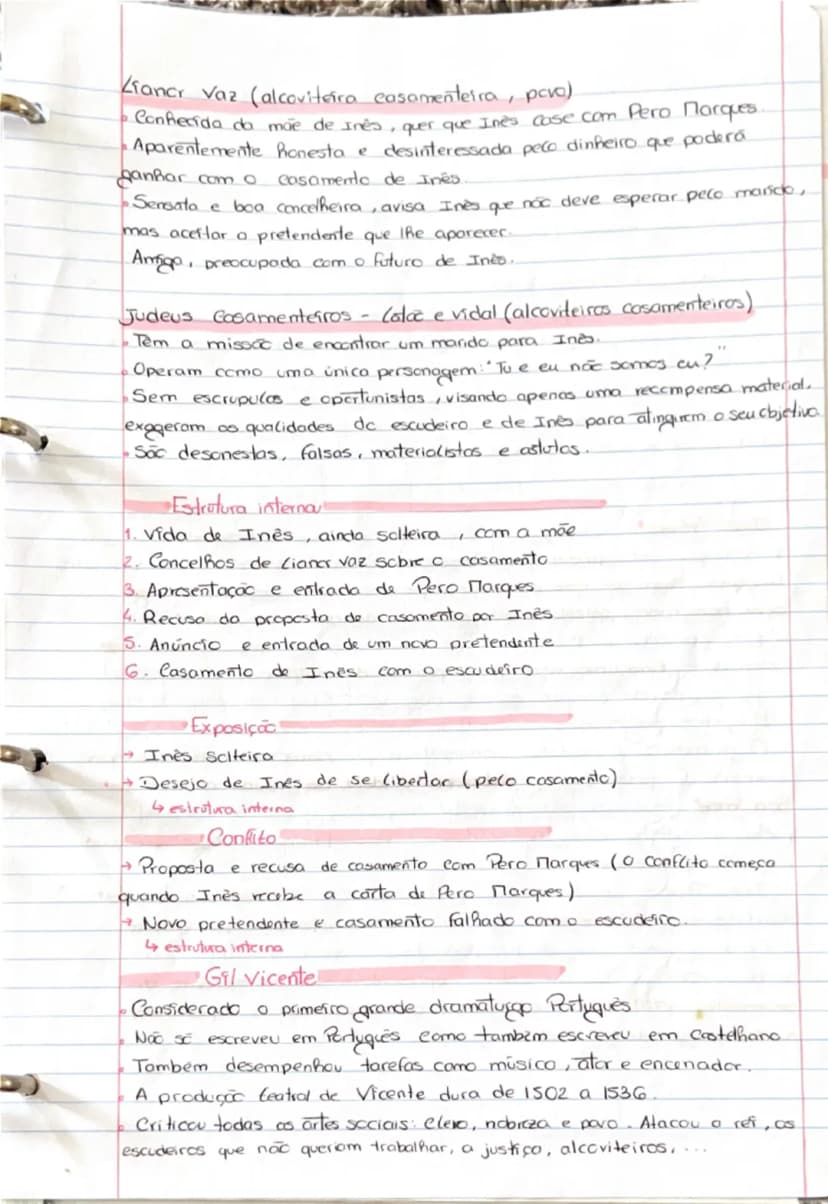 Lianor Vaz (alcoviteira casamenteira, povo)
• Conhecida da mãe de Inês, quer que Inês case com Pero Marques.
• Aparentemente honesta e desinteressada pelo dinheiro que poderá
ganhar com o casamento de Inês.
• Sensata e boa concelheira, avisa Inês que não deve esperar pelo marido,
mas aceitar o pretendente que lhe aparecer.
Amiga, preocupada com o futuro de Inês.
Judeus Casamenteiros - Latão e Vidal (alcoviteiros casamenteiros)
• Têm a missão de encontrar um marido para Inês.
• Operam como uma única personagem: "Tu e eu não somos eu?"
• Sem escrupulos e oportunistas, visando apenas uma recompensa material,
exageram as qualidades do escudeiro e de Inês para atingirem o seu objetivo.
• São desonestas, falsas, materialistas e astutos.
Estrutura interna
1. Vida de Inês, ainda solteira, com a mãe
2. Concelhos de Lianor Vaz sobre o casamento
3. Apresentação e entrada de Pero Marques
4. Recusa da proposta de casamento por Inês
5. Anúncio e entrada de um novo pretendente
6. Casamento de Inês com o escudeiro
Exposição
→ Inês solteira
→ Desejo de Inês de se libertar (pelo casamento)
↳ estrutura interna
Conflito
→ Proposta e recusa de casamento com Pero Marques (o conflito começa
quando Inês recebe a carta de Pero Marques)
→ Novo pretendente e casamento falhado com o escudeiro.
↳ estrutura interna
Gil Vicente
• Considerado o primeiro grande dramaturgo Português
• Não só escreveu em Português como também escreveu em Castelhano
• Também desempenhou tarefas como músico, ator e encenador.
• A produção teatral de Vicente dura de 1502 a 1536.
• Criticou todas as artes sociais: clero, nobreza e povo. Atacou o rei, os
escudeiros que não queriam trabalhar, a justiça, alcoviteiros, ...